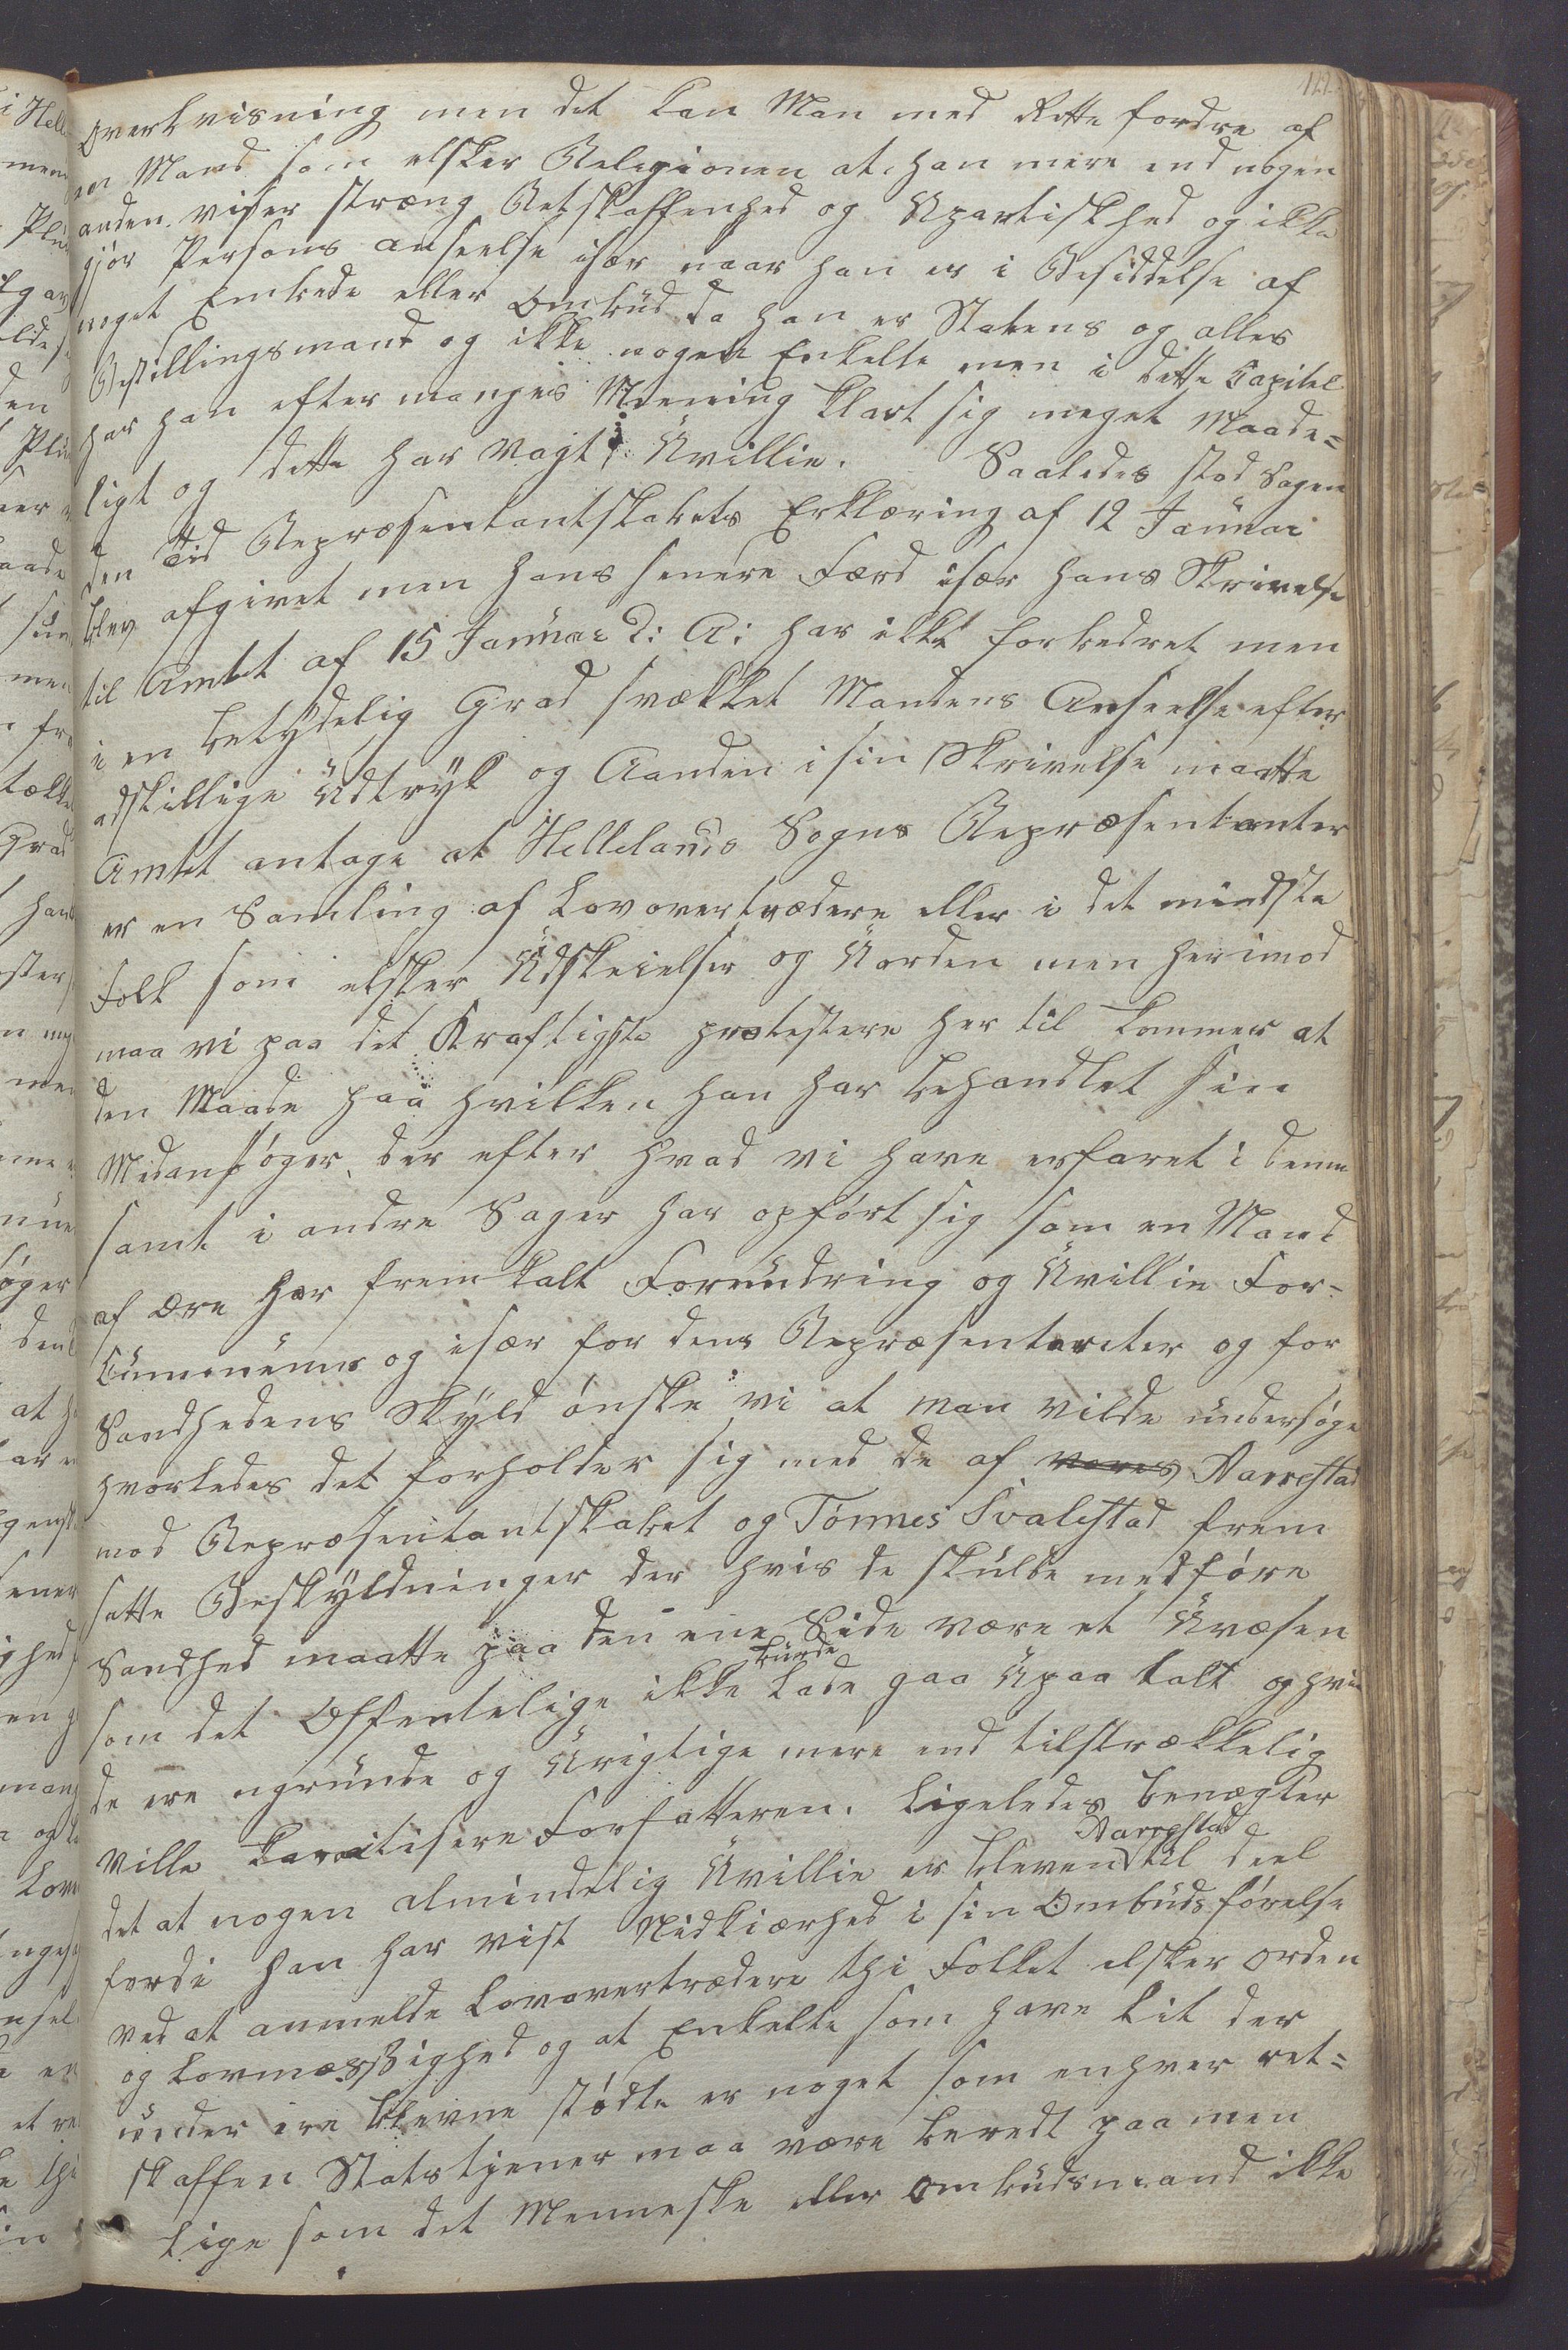 122
Overbevisning men det kan Man med Rette fordre af
en Mand som elsker Religionen at han mere end nogen
anden viser stræng Retskaffenhed og Upartiskhed og ikke
gjør Persons anseelse især naar han er i Besiddelse af
noget Embede eller Ombud da han er Statens og alles
Bestillingsmand og ikke nogen Enkelte men i dette Capitel
har han efter manges Mening klart sig meget Maade=
ligt og dette har vagt Uvillie. Saaledes stod Sagen
den Tid Repræsentantskabets Erklæring af 12 Januar
blev afgivet men hans senere Færd især hans Skrivelse
til Amtet af 15 Januar d: A: har ikke forbedret men
i en betydelig Grad svækket Mandens Anseelse efter
adskillige Udtryk og Aanden i sin Skrivelse maatte
Amtet antage at Hellelands Sogns Repræsentanter
er en Samling af Lovovertrædere eller i det mindste
Folk som elsker Udskeielser og Uorden men herimod
maa vi paa det Kraftigste protestere her til kommer at
den Maade paa hvilken han har behandlet sin
Medansøger, der efter hvad vi have erfaret i denne
samt i andre Sager har opført sig som en Mand
af Ære har fremkalt Forundring og Uvillie For-
Cummunens og især for dens Repræsentanter og for
Sandhedens Skyld ønske vi at man vilde undersøge
hvorledes det forholder sig med de af vores Aarrestad
mod Repræsentantskabet og Tønnes Svalestad frem
satte Beskyldninger der hvis de skulde medføre
Sandhed maatte paa den ene Side være et Uvæsen
som det Offentelige ikke burde lade gaa Upaa talt og hvis
de ere ugrunde og Urigtige mere end tilstrækkelig
ville karaktisere Forfatteren. Ligeledes benægter
det at nogen almindelig Uvillie er bleven Aarrestad til deel
fordi han har vist Nidkiærhed i sin Ombudsførelse
ved at anmelde Lovovertrædere thi Folket elsker Orden
og Lovmæssighed og at Enkelte som have lit der
under ere blevne stødte er noget som enhver ret=
skaffen Statstjener maa være beredt paa men
lige som det Menneske eller Ombudsmand ikke